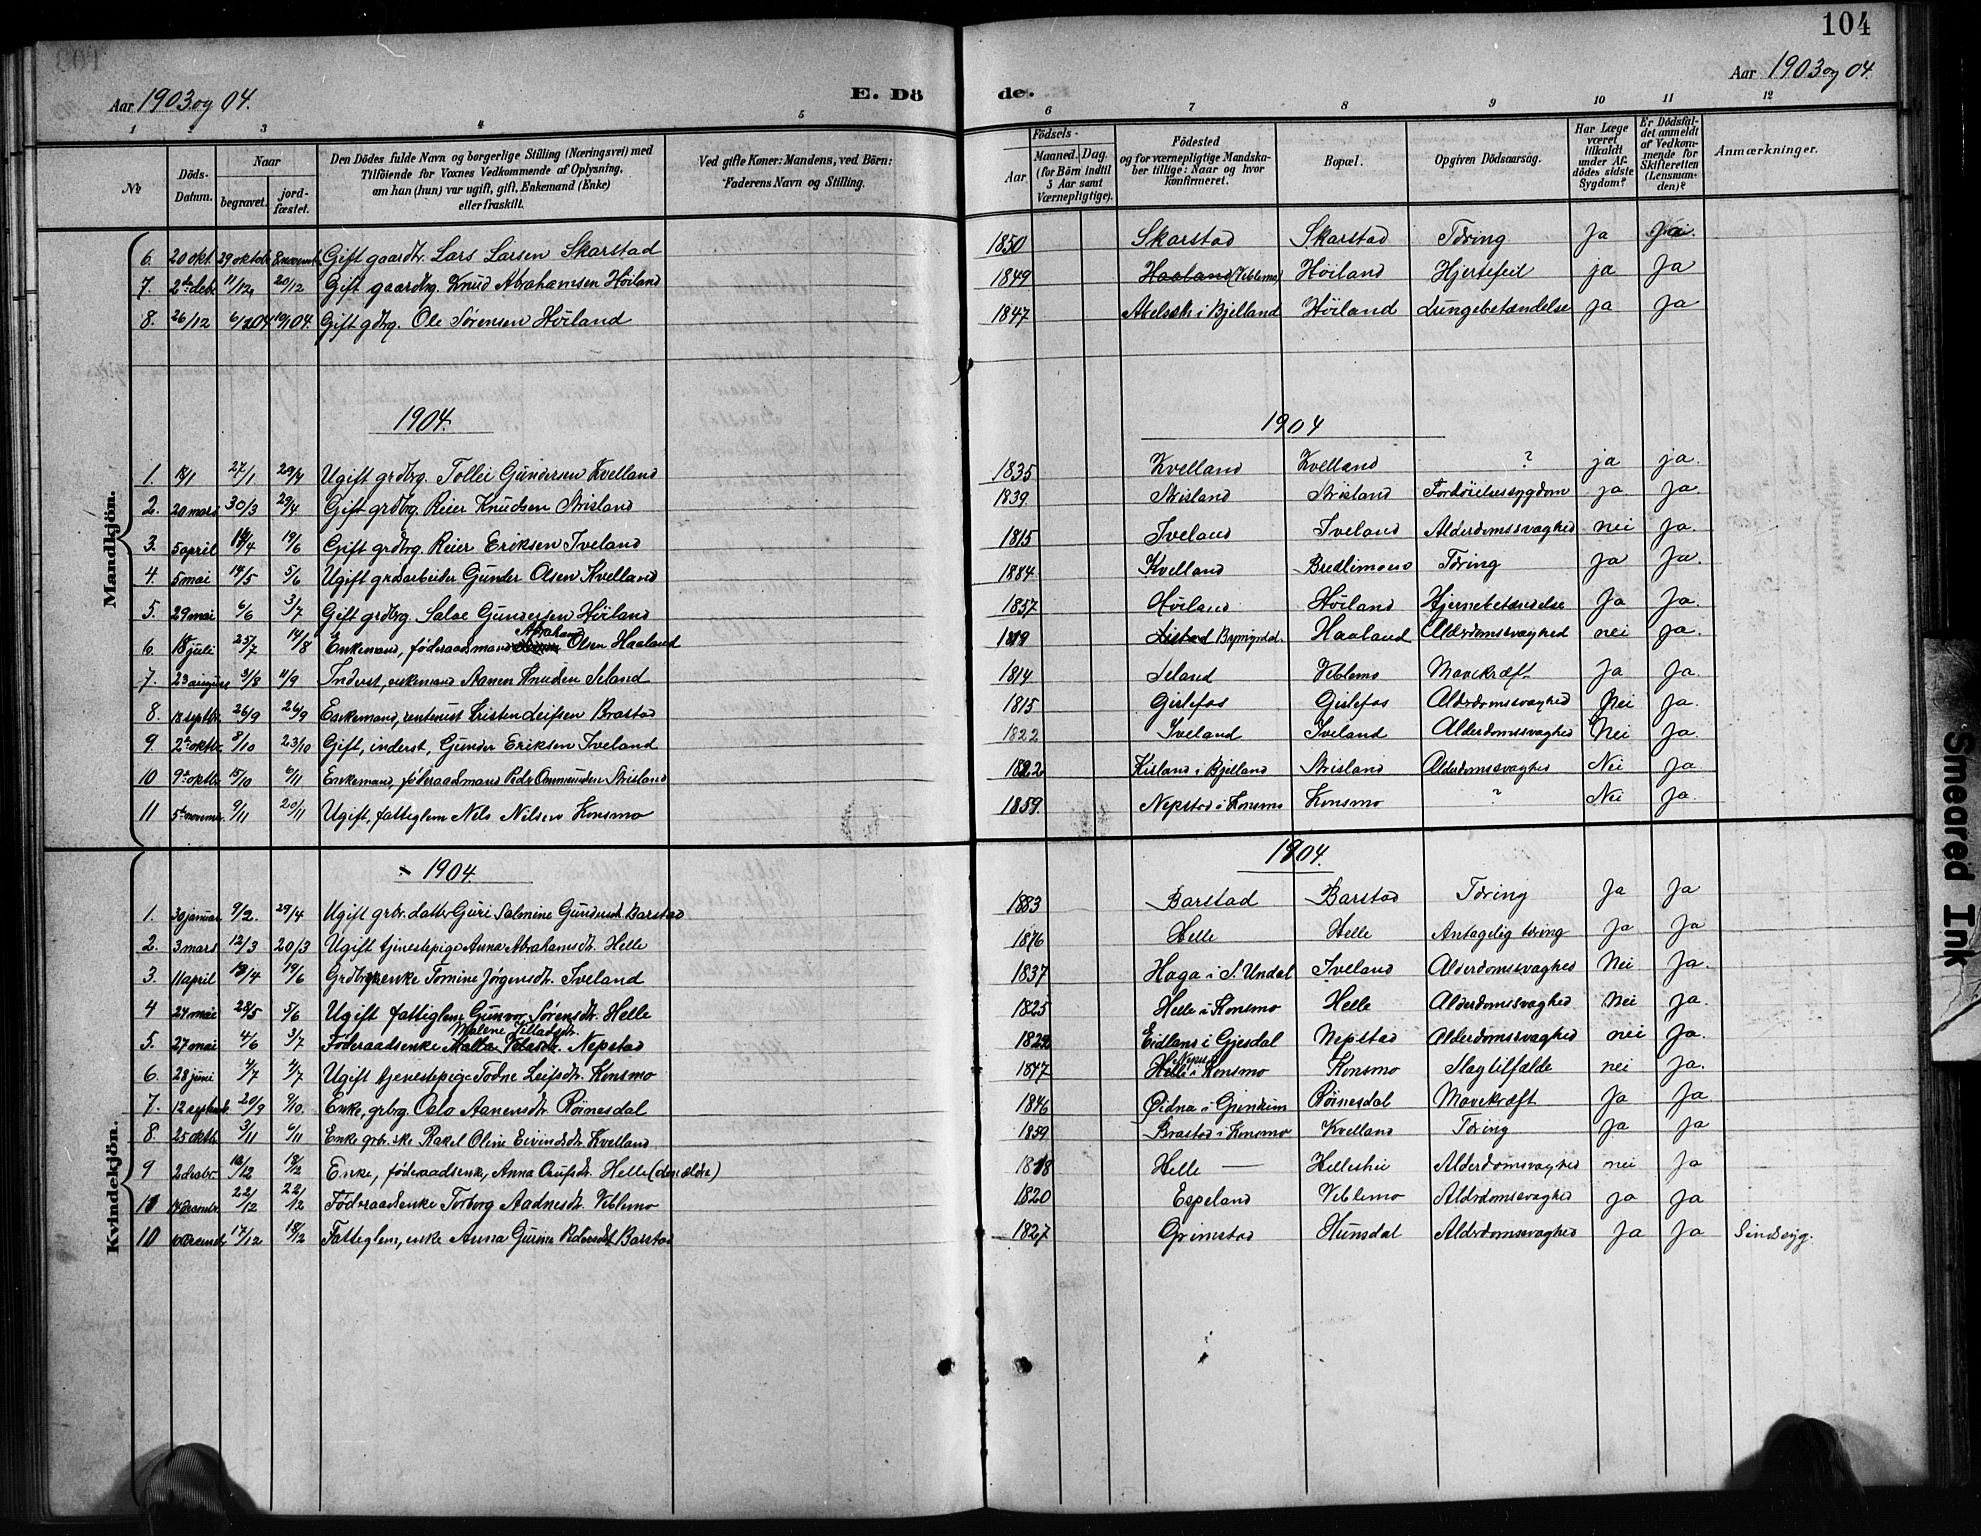 104
Aar 1903 og 04. E. Dö de. Aar 1903 og 04
1 2 3 4 5 6 7 8 9 10 11 12
No
Döds-Datum.
Naar
begravet.
jord-fæstet.
Den Dödes fulde Navn og borgerlige Stilling (Næringsvei) med
Tilföiende for Voxnes Vedkommende af Oplysning,
om han (hun) var ugift, gift, Enkemand (Enke)
eller fraskilt.
Ved gifte Koner: Mandens, ved Börn:
Faderens Navn og Stilling.
Födsels-
Aar.
Maaned. Dag.
(for Börn indtil
5 Aar samt
Værnepligtige).
Födested
og for værnepligtige Mandska-
ber tillige: Naar og hvor
konfirmeret.
Bopæl.
Opgiven Dödsaarsag.
Har Læge
været
tilkaldt
under Af-
dödes sidste
Sygdom?
Er Dödsfal-
det anmeldt
af Vedkom-
mende for
Skifteretten
(Lensman-
den)?
Anmærkninger.
Mandkjön.
6. 20 okt. 29 oktobr 8 novemb. Gift gaardbr. Lars Larsen Skarstad 1850 Skarstad Skarstad Tæring Ja
7. 2den debr 11/12 20/12 Gift gaardbrg. Knud Abrahamsen Höiland 1849 Haaland (Viblemo) Höiland Hjertefeil ja Ja
8. 26/12 6/1 04 Gift gdbrg. Ole Sörensen Höiland 1847 i Bjelland Höiland Lungebetændelse Ja Ja
1904. 1904
1. 27/1 Ugift grdbrg. Tollei Gundersen Kvelland 1835 Kvelland Kvelland ? ja ja.
2. 20 mars 30/3 29/4 Gift grdbrg. Reier Knudsen Strisland 1839 Strisland Strisland Fordöielsessygdom ja Ja.
3. 5 april 19/6 Gift grdbrg. Reier Eriksen Iveland 1815 Iveland Iveland Alderdomssvaghed nei Ja.
4. 5 mai 14/5 5/6 Ugift grdarbeider Gunder Olsen Kvelland 1884 Kvelland Bredlimoen Tæring Ja Ja.
5. 29 mai 6/6 3/7 Gift grdbrg Salve Gundersen Höiland 1857 Höiland Höiland Hjernebetændelse Ja Ja.
6. 18 juli 25/7 14/8 Enkemand, föderaadsmand Abraham Olsen Haaland 1819 Haaland Alderdomssvaghed nei Ja.
7. 23 august 31/8 11/9 Inderst, enkemand Aanen Knudsen Seland 1814 Seland Viblemo Mavekræft Ja Ja.
8. 18 septbr. 26/9 26/9 Enkemand, rentenist Kristen Leifsen Brastad 1815 Gislefos Gislefos Alderdomssvaghed Nei Ja.
9. 2den oktbr. 8/10 23/10 Gift, inderst, Gunder Eriksen Iveland 1822 Iveland Iveland Alderdomssvaghed Nei Ja.
10 9de oktbr. 15/10 6/11 Enkemand, föderaadsmand Peder Ommundsen Strisland 1822 Kisland i Bjelland Strisland Alderdomssvaghed Nei Ja
11 5te novemr. 9/11 20/11 Ugift, fattiglem Nils Nilsen Konsmo 1859 Nepstad i Konsmo Konsmo ? Nei Ja.
Kvindekjön.
1904. 1904.
1. 30 januar 9/2. 29/4 Ugift grbr. datter Guri Salmine Gundersdt. Barstad 1883 Barstad Barstad Tæring Ja Ja
2. 3 mars 12/3 20/3 Ugift tjenestepige Anna Abrahamsdt. Helle 1876 Helle Helle Antagelig tæring Ja Ja
3. 11 april 19/6 Grdbrgenke Tomine Jørgensdt. Iveland 1837 Haga i S. Undal Iveland Alderdomssvaghed Nei Ja.
4 24 mai 28/5 5/6 Ugift fattiglem Gunvor Sörensdt. Helle 1825 Helle i Konsmo Helle Alderdomssvaghed nei Ja.
5. 27 mai 4/6 3/7 Föderaadsenke Malene Nepstad Eidland i Gyesdal Nepstad Alderdomssvaghed nei Ja.
6. 28 juni Ugift tjenestepige Todne Leifsdt. Konsmo 1847 i Konsmo Konsmo Slagtilfælde nei Ja.
7. 12 septemb. 20/9 9/10 Enke, grbrg Oslo Aanensdt. Röinesdal 1846 Öidna i Grindum Röinesdal Mavekræft Ja Ja
8. 25 oktbr. 3/11 6/11 Enke grbrske Rakel Oline Eivindsdt. Kvelland 1859 Brastad i Konsmo Kvelland Tæring Ja Ja
9 2 decbr. 18/12 Enke, föderaadsenke, Anna Helle (den ældre) 1818 Helle — Alderdomsvaghed nei Ja
11 22/12 22/12 Föderaadsenke Torborg Aadnesdt. Viblemo 1820 Espeland Viblemo Alderdomssvaghed Ja Ja
10 17/12 18/12 Fattiglem, enke Anna Gurine Pedersdt Barstad 1827 Grimstad Hunsdal Alderdomssvaghed Ja Ja Sindssyg.
Smeared Ink